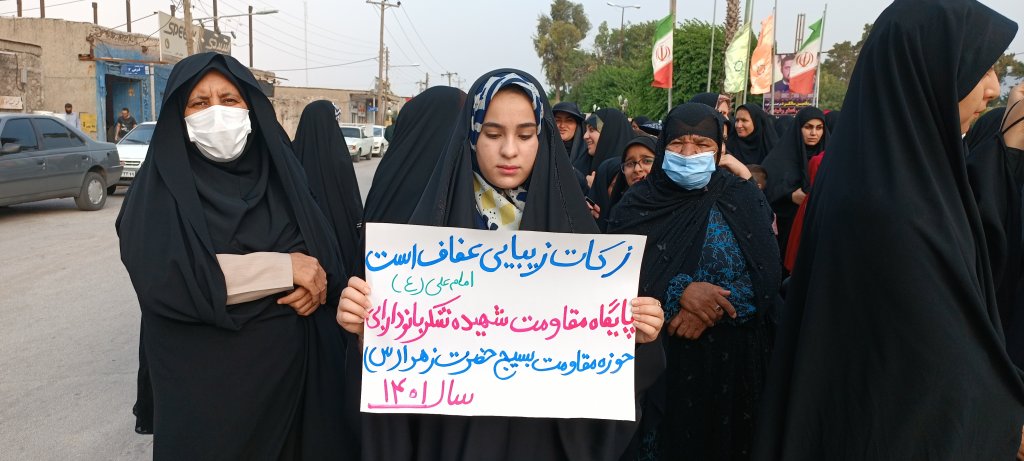 زکات زیبایی عفاف است
امام علی (ع)
پایگاه مقاومت شهیده
حوزه مقاومت بسیج حضرت زهرا (س)
سال ۱۴۰۱